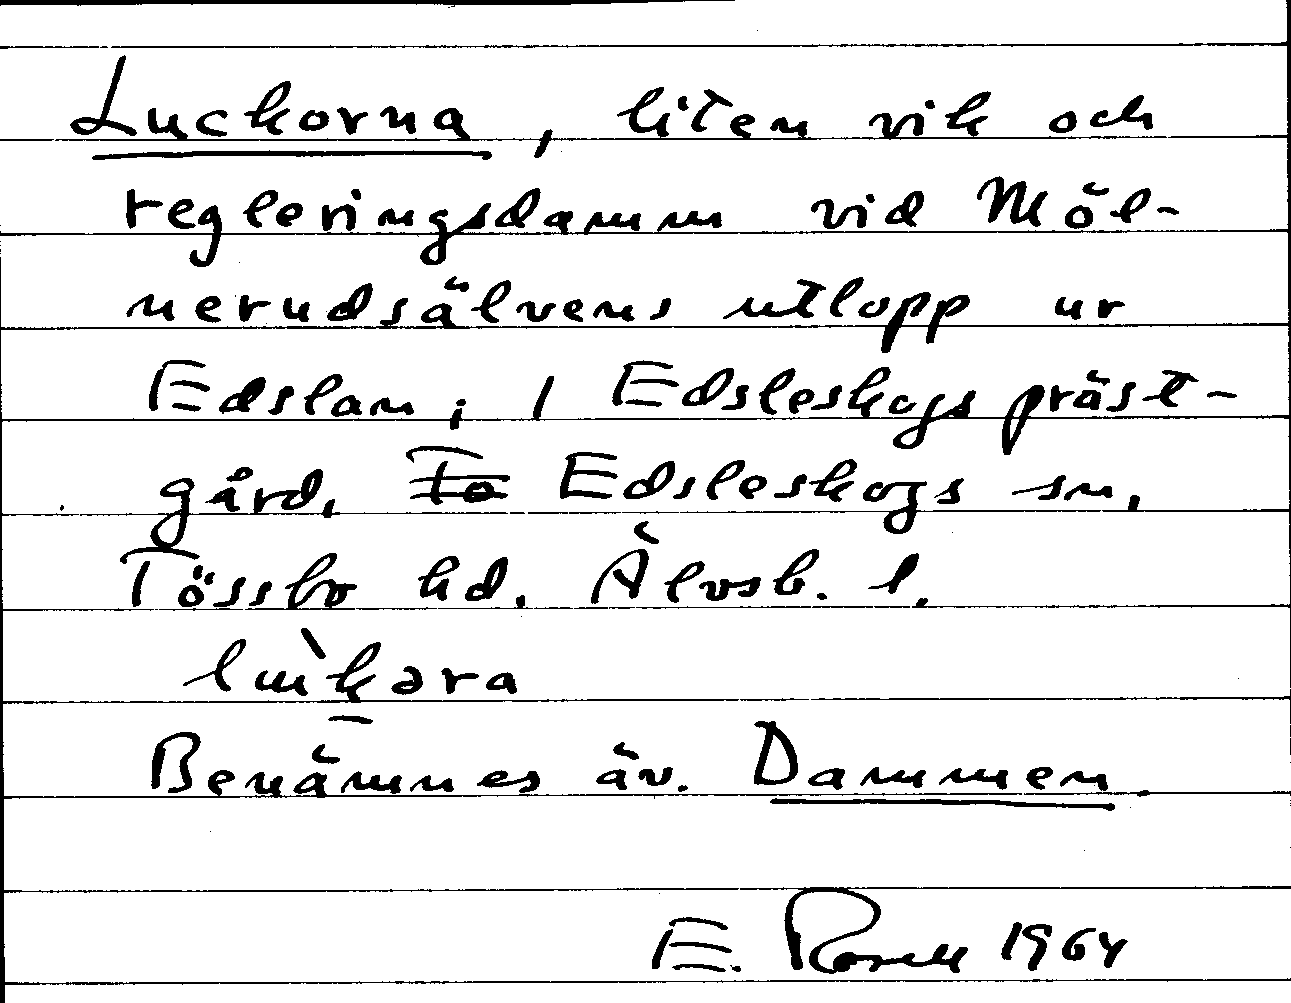 Luckorna, liten vik och
regleringsdamm vid Möl-
nerudsälvens utlopp ur
Edslan; i Edsleskogs präst-
gård, To Edsleskogs sn,
Tössbo hd. Älvsb. l.
lu̇̀kəra
Benämnes äv. Dammen.
E. Rosell 1964